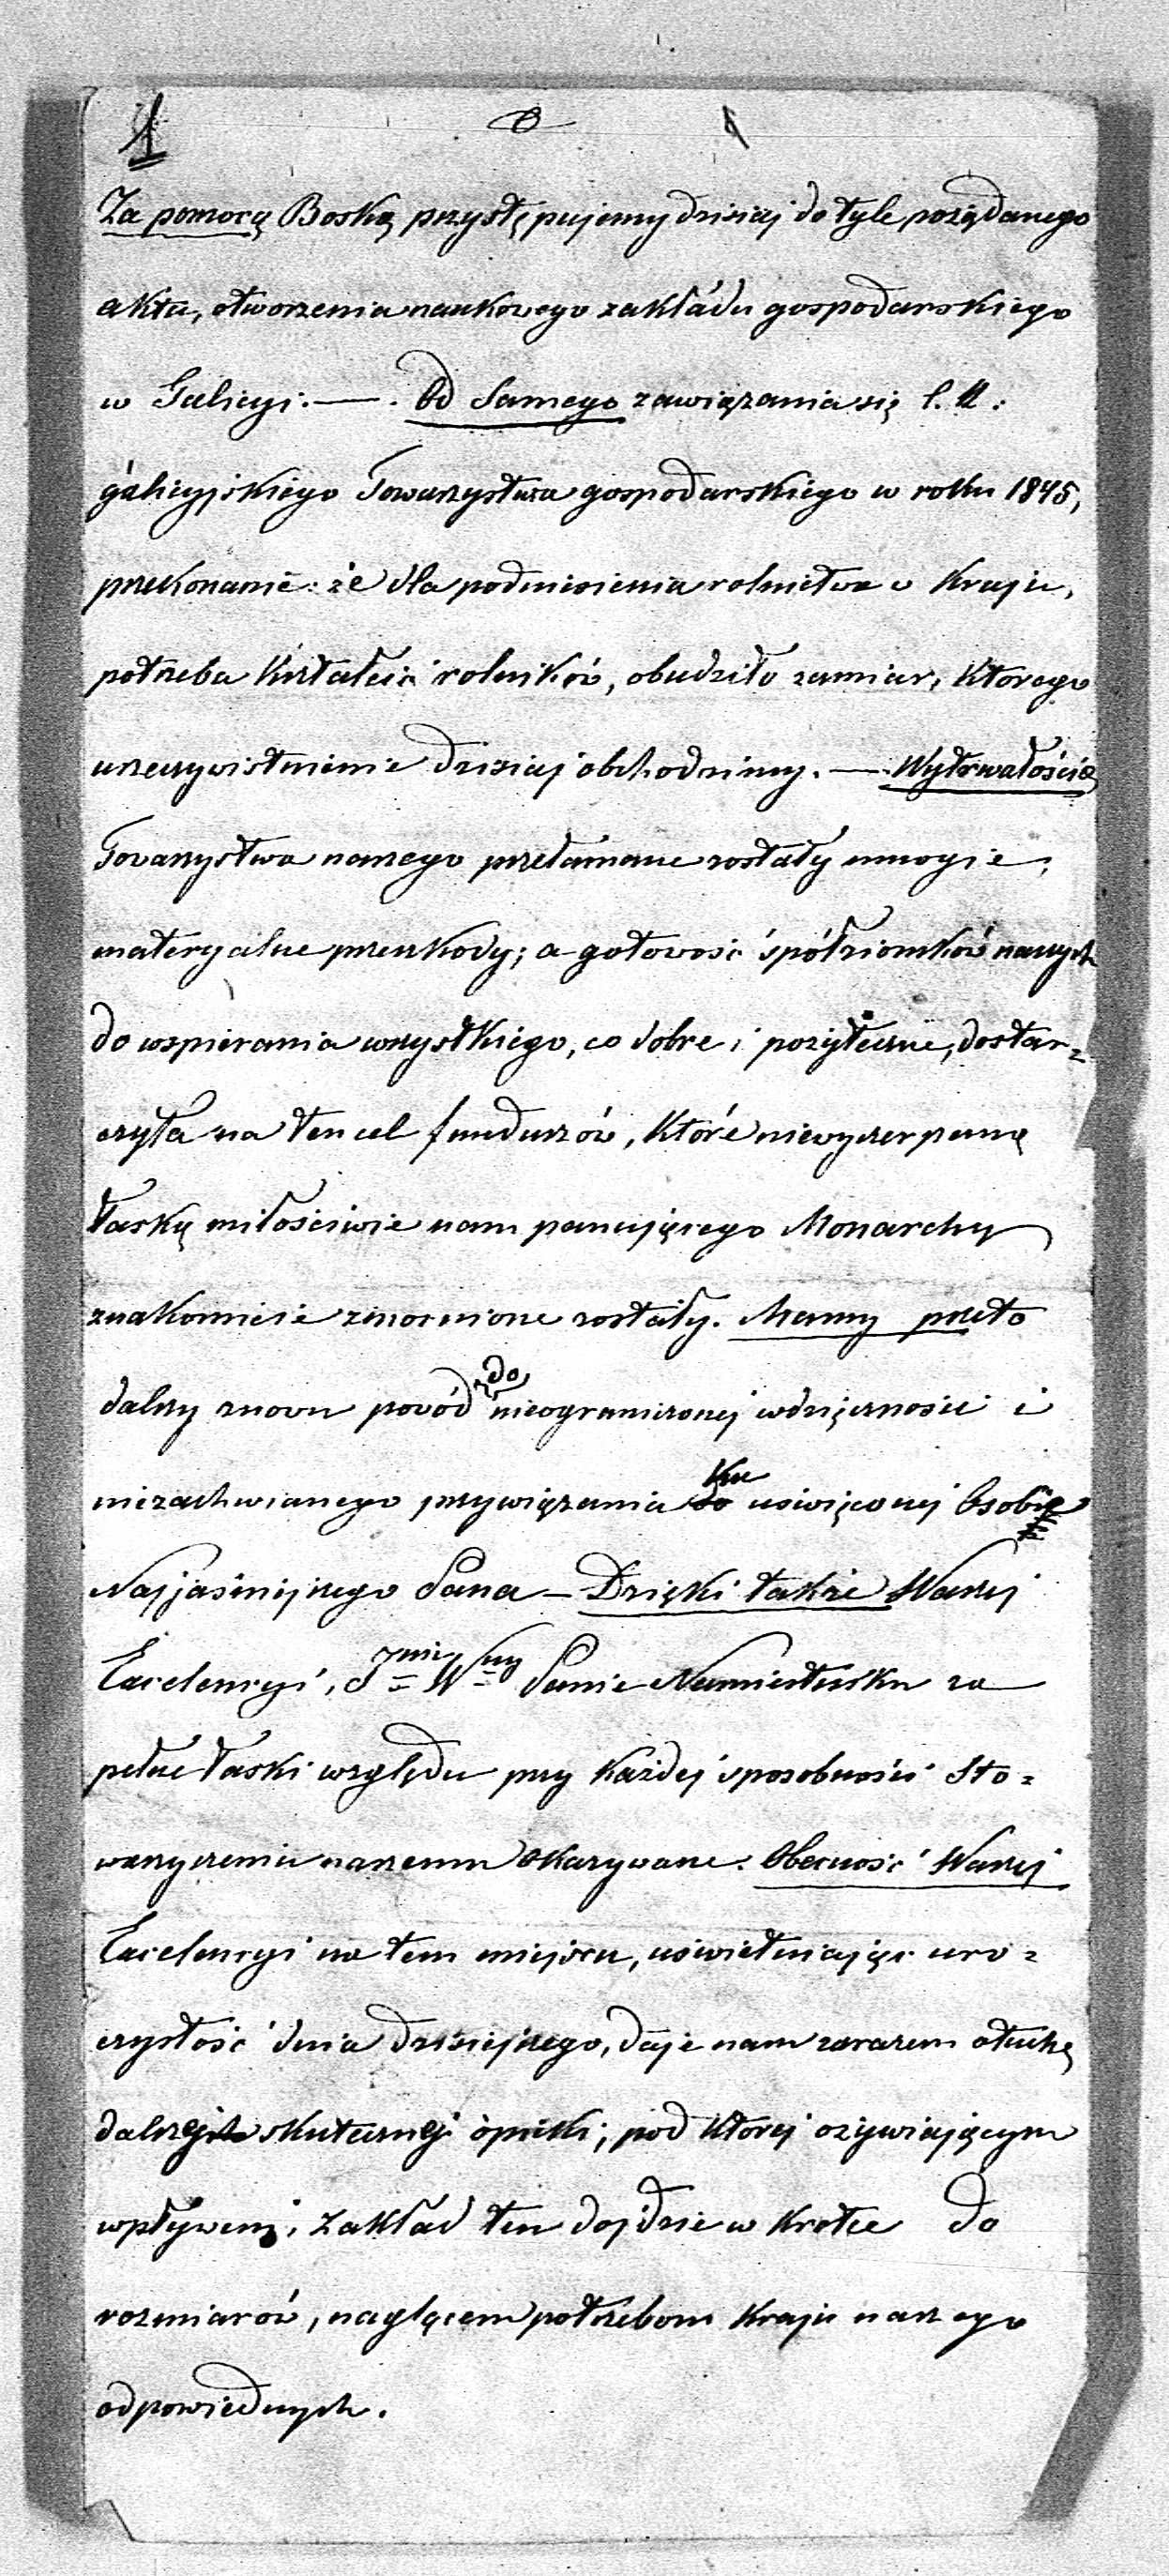 1
Za pomocą Boską przystępujemy dzisiaj do tyle pożądanego
aktu, otworzenia naukowego zakładu gospodarskiego
w Galicyi. — . Od Samego zawiązania się C. K.
galicyjskiego Towarzystwa gospodarskiego w roku 1845,
przekonanie: że dla podniesienia rolnictwa w Kraju,
potrzeba Kształcić rolników, obudziło zamiar, Którego
urzeczywistnienie dzisiaj obchodzimy. — Wytrwałością
Towarzystwa naszego przełamane zostały mnogie,
materyalne przeszkody; a gotowość spółziomków naszych
do wspierania wszystkiego, co dobre i pożyteczne, dostar-
czyła na ten cel funduszów, Które niewyczerpaną
łaską miłościwie nam panującego Monarchy
znakomicie zmocnione zostały. Mamy przeto
dalszy znowu powód do nieograniczonej wdzięczności i
niezachwianego przywiązania ku uświęconej Osobie
Najjaśniejszego Pana — Dzięki także Waszej
Excelencyi, Jmie Wny Panie Namiestniku za
pełne łaski względy przy Każdej sposobności Sto-
warzyszeniu naszemu okazywane. Obecność Waszej
Excelencyi na tem miejscu, uświetniając uro-
czystość dnia dzisiejszego, daje nam zarazem otuchę
dalszej skutecznej opieki, pod Której ożywiającym
wpływem, zakład ten dojdzie w Krótce do
rozmiarów, naglącem potrzebom Kraju naszego
odpowiednych.